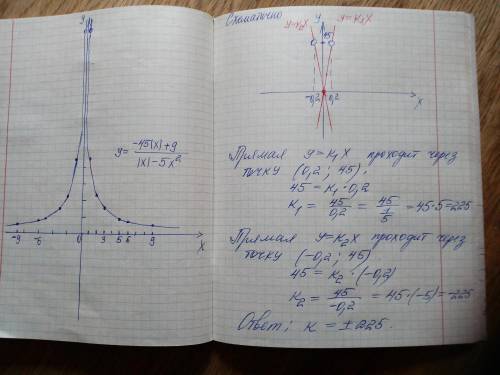 y
y = (-45|x|+9)/(|x|-5x²)
-9 -6 3 5 6 9 X
Схематично
y=k₂x y y=k₁x
45
-0,2 0,2 X
Прямая y=k₁x проходит через
точку (0,2; 45).
45 = k₁·0,2
k₁ = 45/0,2 = 45/(1/5) = 45·5=225
Прямая y=k₂x проходит через
точку (-0,2; 45).
45 = k₂·(-0,2)
k₂ = 45/-0,2 = 45·(-5)=-225
Ответ: k = ±225.